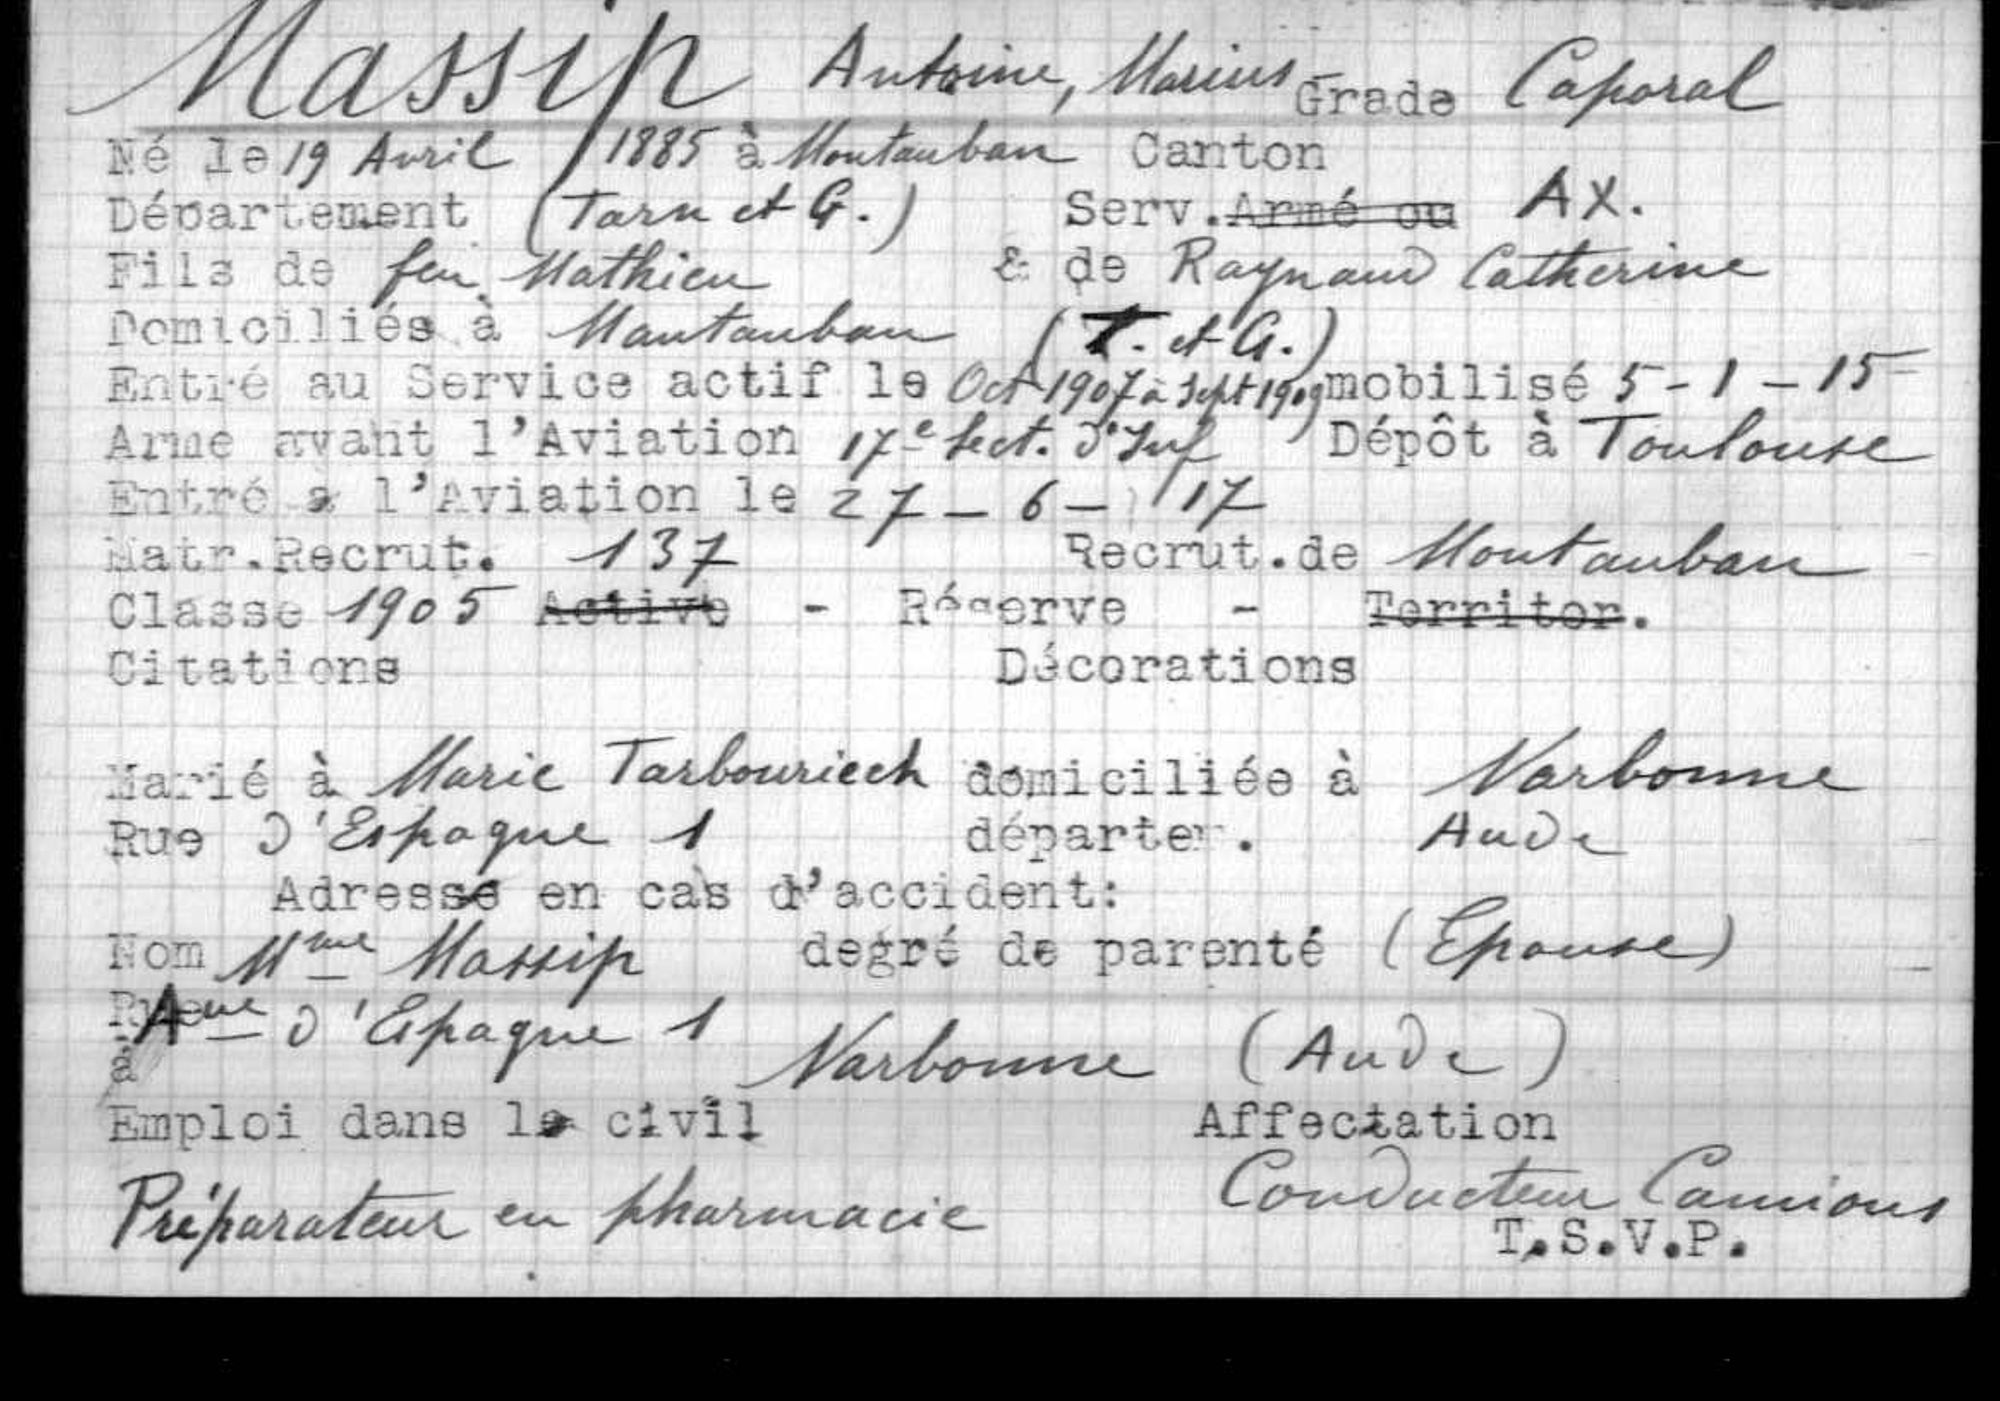 Massip Antoine, Marius Grade Caporal
Né le 19 Avril 1885 à Montauban Canton
Département (Tarn et G.) Serv. Armé ou AX.
Fils de feu Mathieu & de Raynaud Catherine
Domiciliés à Montauban (T. et G.)
Entré au Service actif le Oct 1907 à Sept 1909 mobilisé 5-1-15
Arme avant l'Aviation 17e Sect. d'Inf Dépôt à Toulouse
Entré à l'Aviation le 27-6-17
Matr.Recrut. 137 Recrut.de Montauban
Classe 1905 Active - Réserve - Territor.
Citations Décorations
Marié à Marie Tarbouriech domiciliée à Narbonne
Rue d'Espagne 1 départem. Aude
Adresse en cas d'accident:
Nom Mme Massip degré de parenté (Epouse)
Aeue d'Espagne 1
à Narbonne (Aude)
Emploi dans le civil Affectation
Préparateur en pharmacie Conducteur Camions
T.S.V.P.